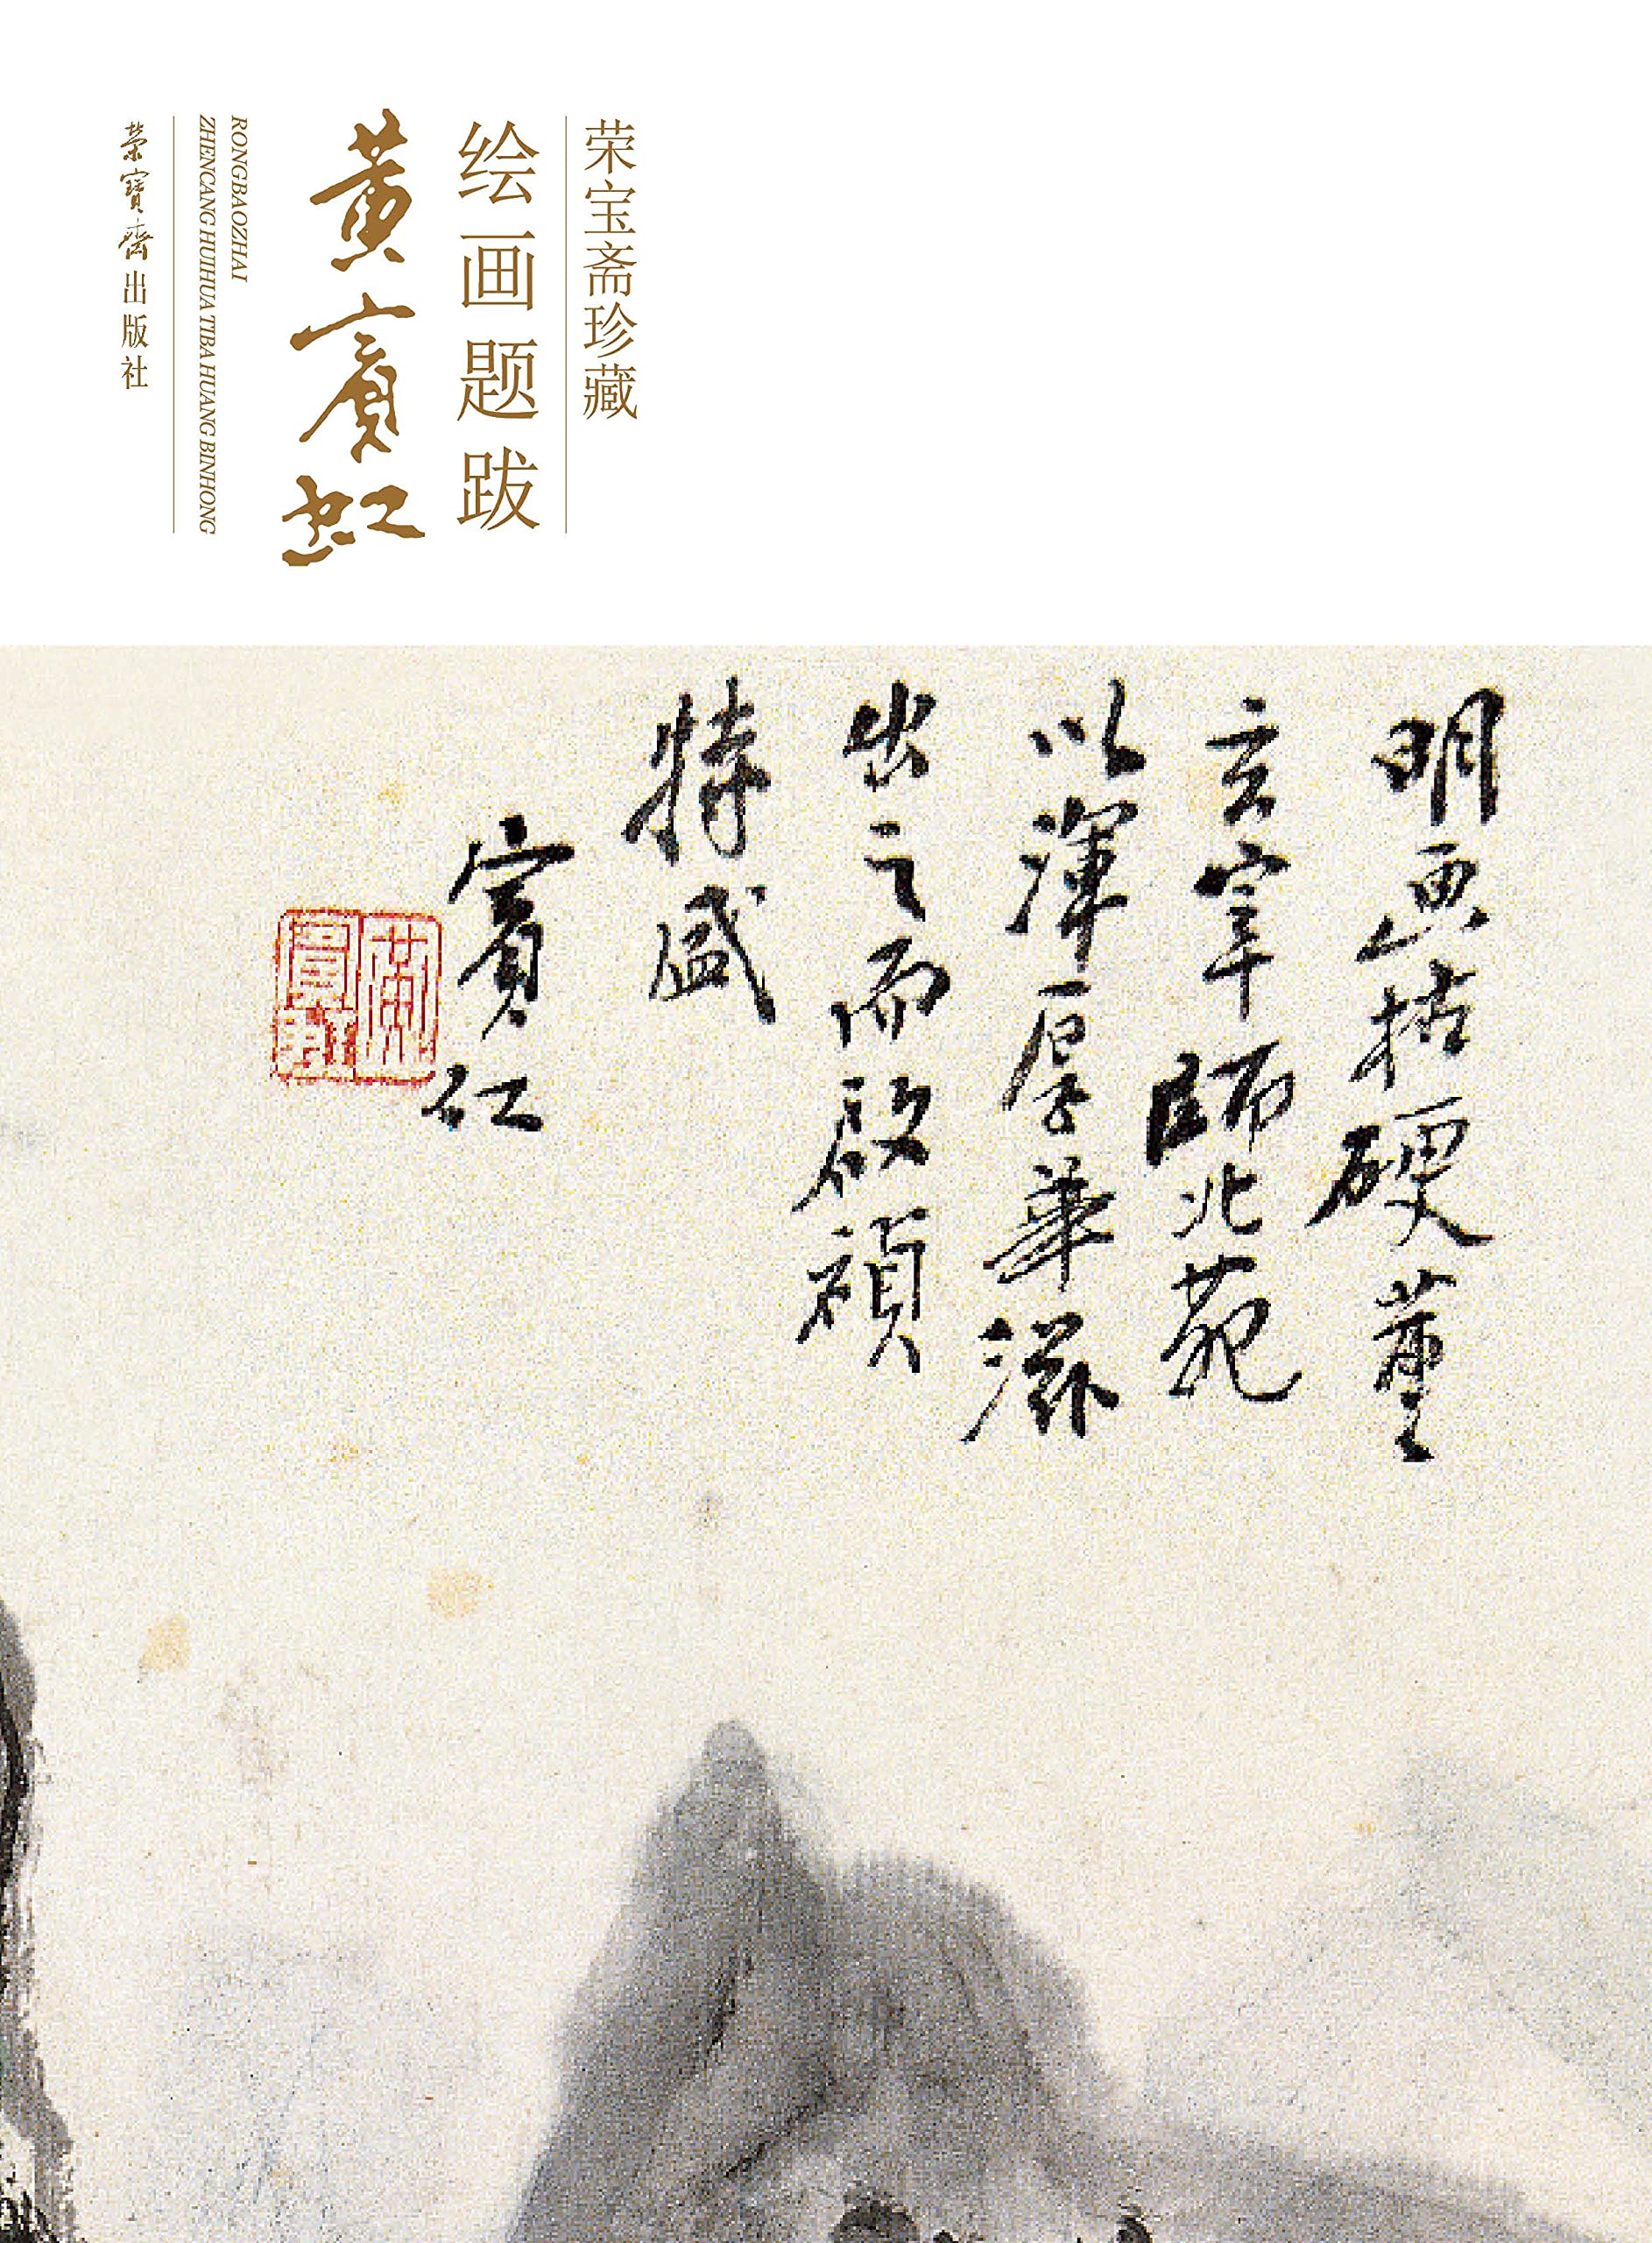 荣宝斋珍藏
绘画题跋
黄賓虹
RONGBAOZHAI
ZHENCANG HUIHUA TIBA HUANG BINHONG
榮寶齋出版社
明画枯硬董
玄宰師北苑
以渾厚華滋
出之而啟禎
特盛
賓虹